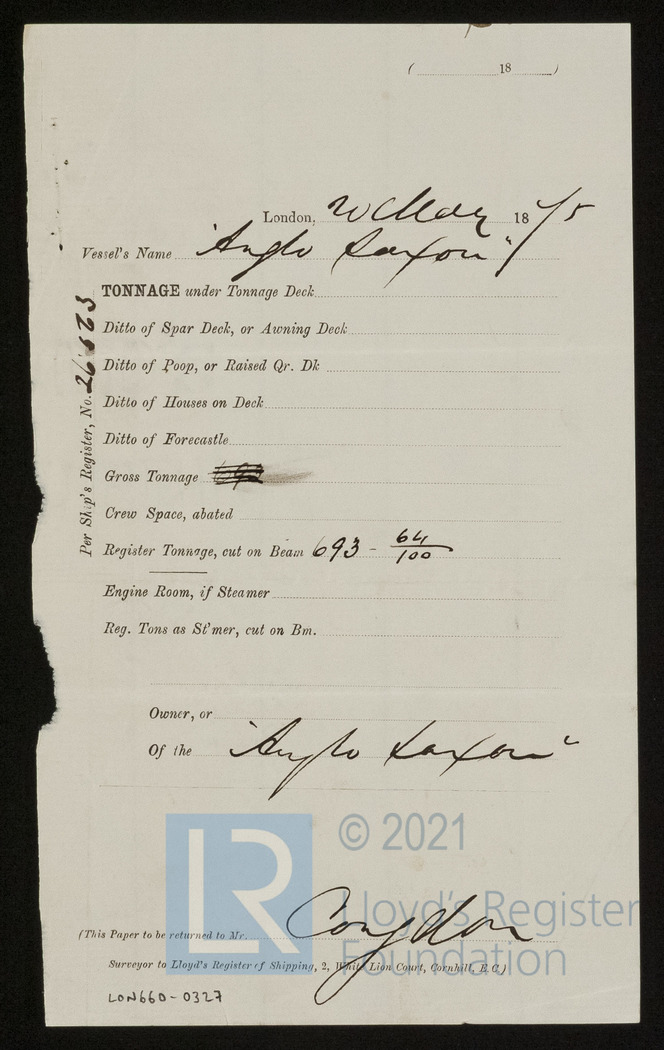 ( 18 )
London, 20 May 1875
Vessel's Name "Anglo Saxon"
TONNAGE under Tonnage Deck
Ditto of Spar Deck, or Awning Deck
Ditto of Poop, or Raised Qr. Dk
Ditto of Houses on Deck
Ditto of Forecastle
Gross Tonnage
Crew Space, abated
Register Tonnage, cut on Beam 693 - 64/100
Engine Room, if Steamer
Reg. Tons as St'mer, cut on Bm.
Per Ship's Register, No.
Owner, or
Of the "Anglo Saxon"
© 2021
LR
Lloyd's Register
Foundation
(This Paper to be returned to Mr. Congdon
Surveyor to Lloyd's Register of Shipping, 2, White Lion Court, Cornhill, E.C.)
LON660-0327